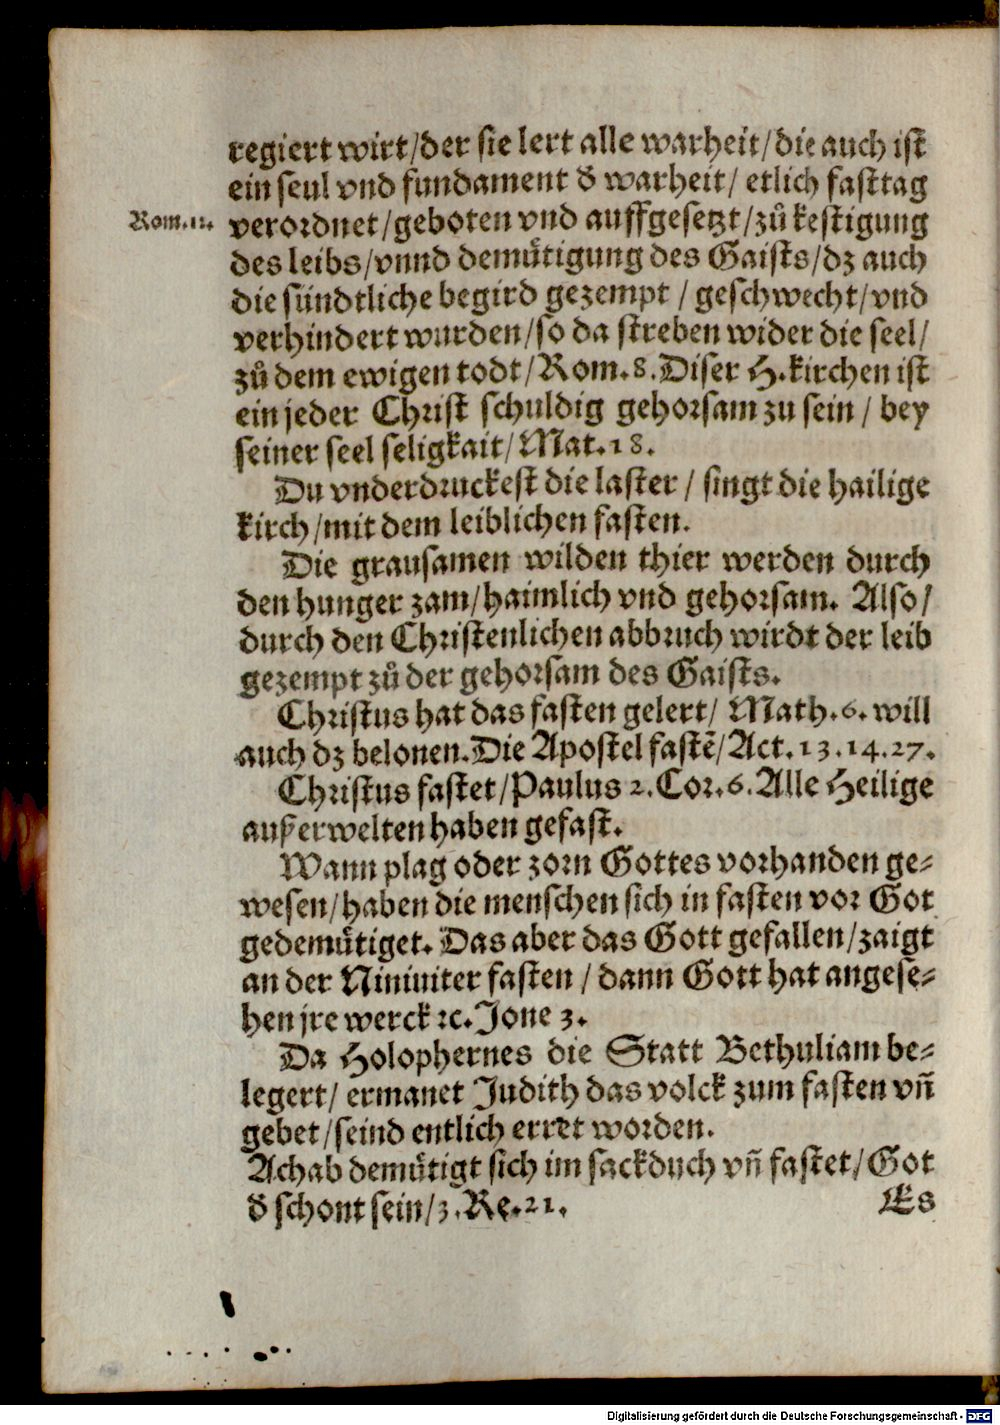 regiert wirt/der sie lert alle warheit/die auch ist
ein seul vnd fundament d̕ warheit/ etlich fasttag
Rom.12. verordnet/geboten vnd auffgesetzt/zů kestigung
des leibs/vnnd demuͤtigung des Gaists/dz auch
die sündtliche begird gezempt / geschwecht/vnd
verhindert wurden/so da streben wider die seel/
zů dem ewigen todt/Rom.8.Diser H.kirchen ist
ein jeder Christ schuldig gehorsam zu sein / bey
seiner seel seligkait/Mat.18.
Du vnderdruckest die laster / singt die hailige
kirch/mit dem leiblichen fasten.
Die grausamen wilden thier werden durch
den hunger zam/haimlich vnd gehorsam. Also/
durch den Christenlichen abbruch wirdt der leib
gezempt zů der gehorsam des Gaists.
Christus hat das fasten gelert/ Math.6.will
auch dz belonen.Die Apostel fastē/Act.13.14.27.
Christus fastet/Paulus 2.Cor.6.Alle Heilige
außerwelten haben gefast.
Wann plag oder zorn Gottes vorhanden ge-
wesen/haben die menschen sich in fasten vor Got
gedemuͤtiget. Das aber das Gott gefallen/zaigt
an der Niniuiter fasten / dann Gott hat angese-
hen jre werck ꝛc.Jone 3.
Da Holophernes die Statt Bethuliam be-
legert/ ermanet Judith das volck zum fasten vñ
gebet/seind entlich erret worden.
Achab demuͤtigt sich im sackduch vñ fastet/Got
d̕ schont sein/3.Re.21.
Es
Digitalisierung gefördert durch die Deutsche Forschungsgemeinschaft - DFG